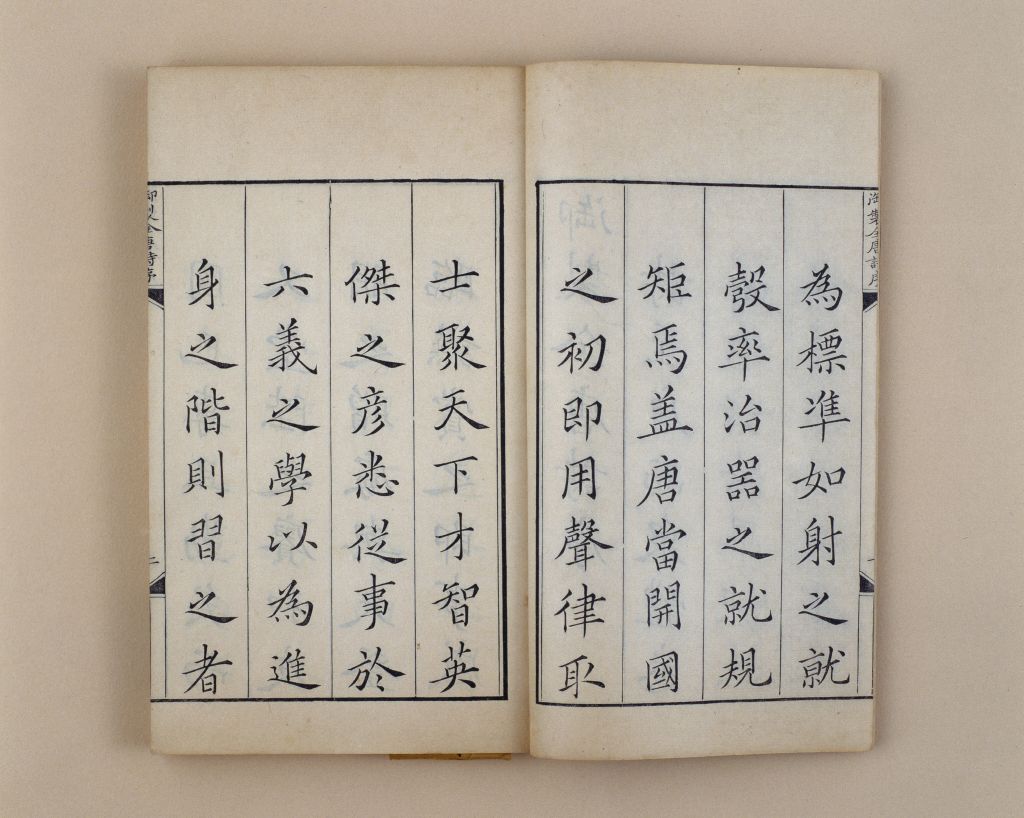 御製全唐詩序
一
為標準如射之就
彀率治器之就規
矩焉盖唐當開國
之初即用聲律取
士聚天下才智英
傑之彦悉從事於
六義之學以為進
身之階則習之者
御製全唐詩序
二